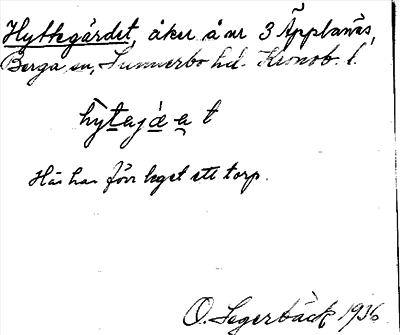 Hyttegärdet, åker å nr 3 Äpplanäs,
Berga sn, Sunnerbo hd. Kronob. l.
hỳtajæ̀a t
Här har förr legat ett torp.
O. Segerbäck 1936